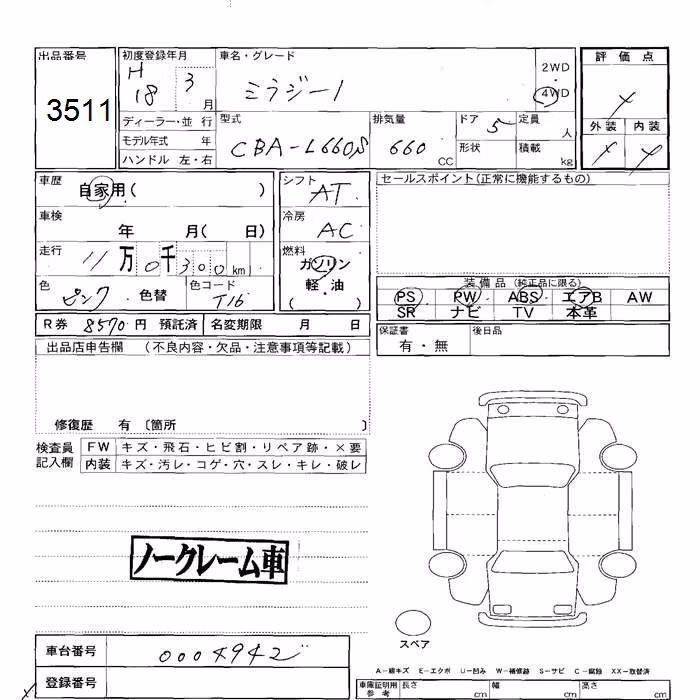 出品番号 初度登録年月 車名・グレード 評価点
H18 3月 ミラジーノ 2WD
3511 4WD
ディーラー・並行 型式 排気量 ドア 5 定員 人 外装 内装
モデル年式 年 CBA-L660S 660 CC 形状 積載 kg
ハンドル 左・右
車歴 自家用( ) シフト AT セールスポイント(正常に機能するもの)
車検 年 月( 日) 冷房 AC
走行 11万0千300km 燃料 ガソリン
軽・油
( )
色 ピンク 色替 色コード T16
装備品(純正品に限る)
PS PW ABS エアB AW
SR ナビ TV 本革
R券 8570円 預託済 名変期限 月 日
保証書 有・無 後日品
出品店申告欄 (不良内容・欠品・注意事項等記載)
修復歴 有〔箇所 〕
検査員記入欄 FW キズ・飛石・ヒビ割・リペア跡・×要
内装 キズ・汚レ・コゲ・穴・スレ・キレ・破レ
ノークレーム車
スペア
車台番号 0004942
登録番号
A-線キズ E-エクボ U-凹み W-補修跡 S-サビ C-腐蝕 XX-取替済
車庫証明用参考 長さ cm 幅 cm 高さ cm